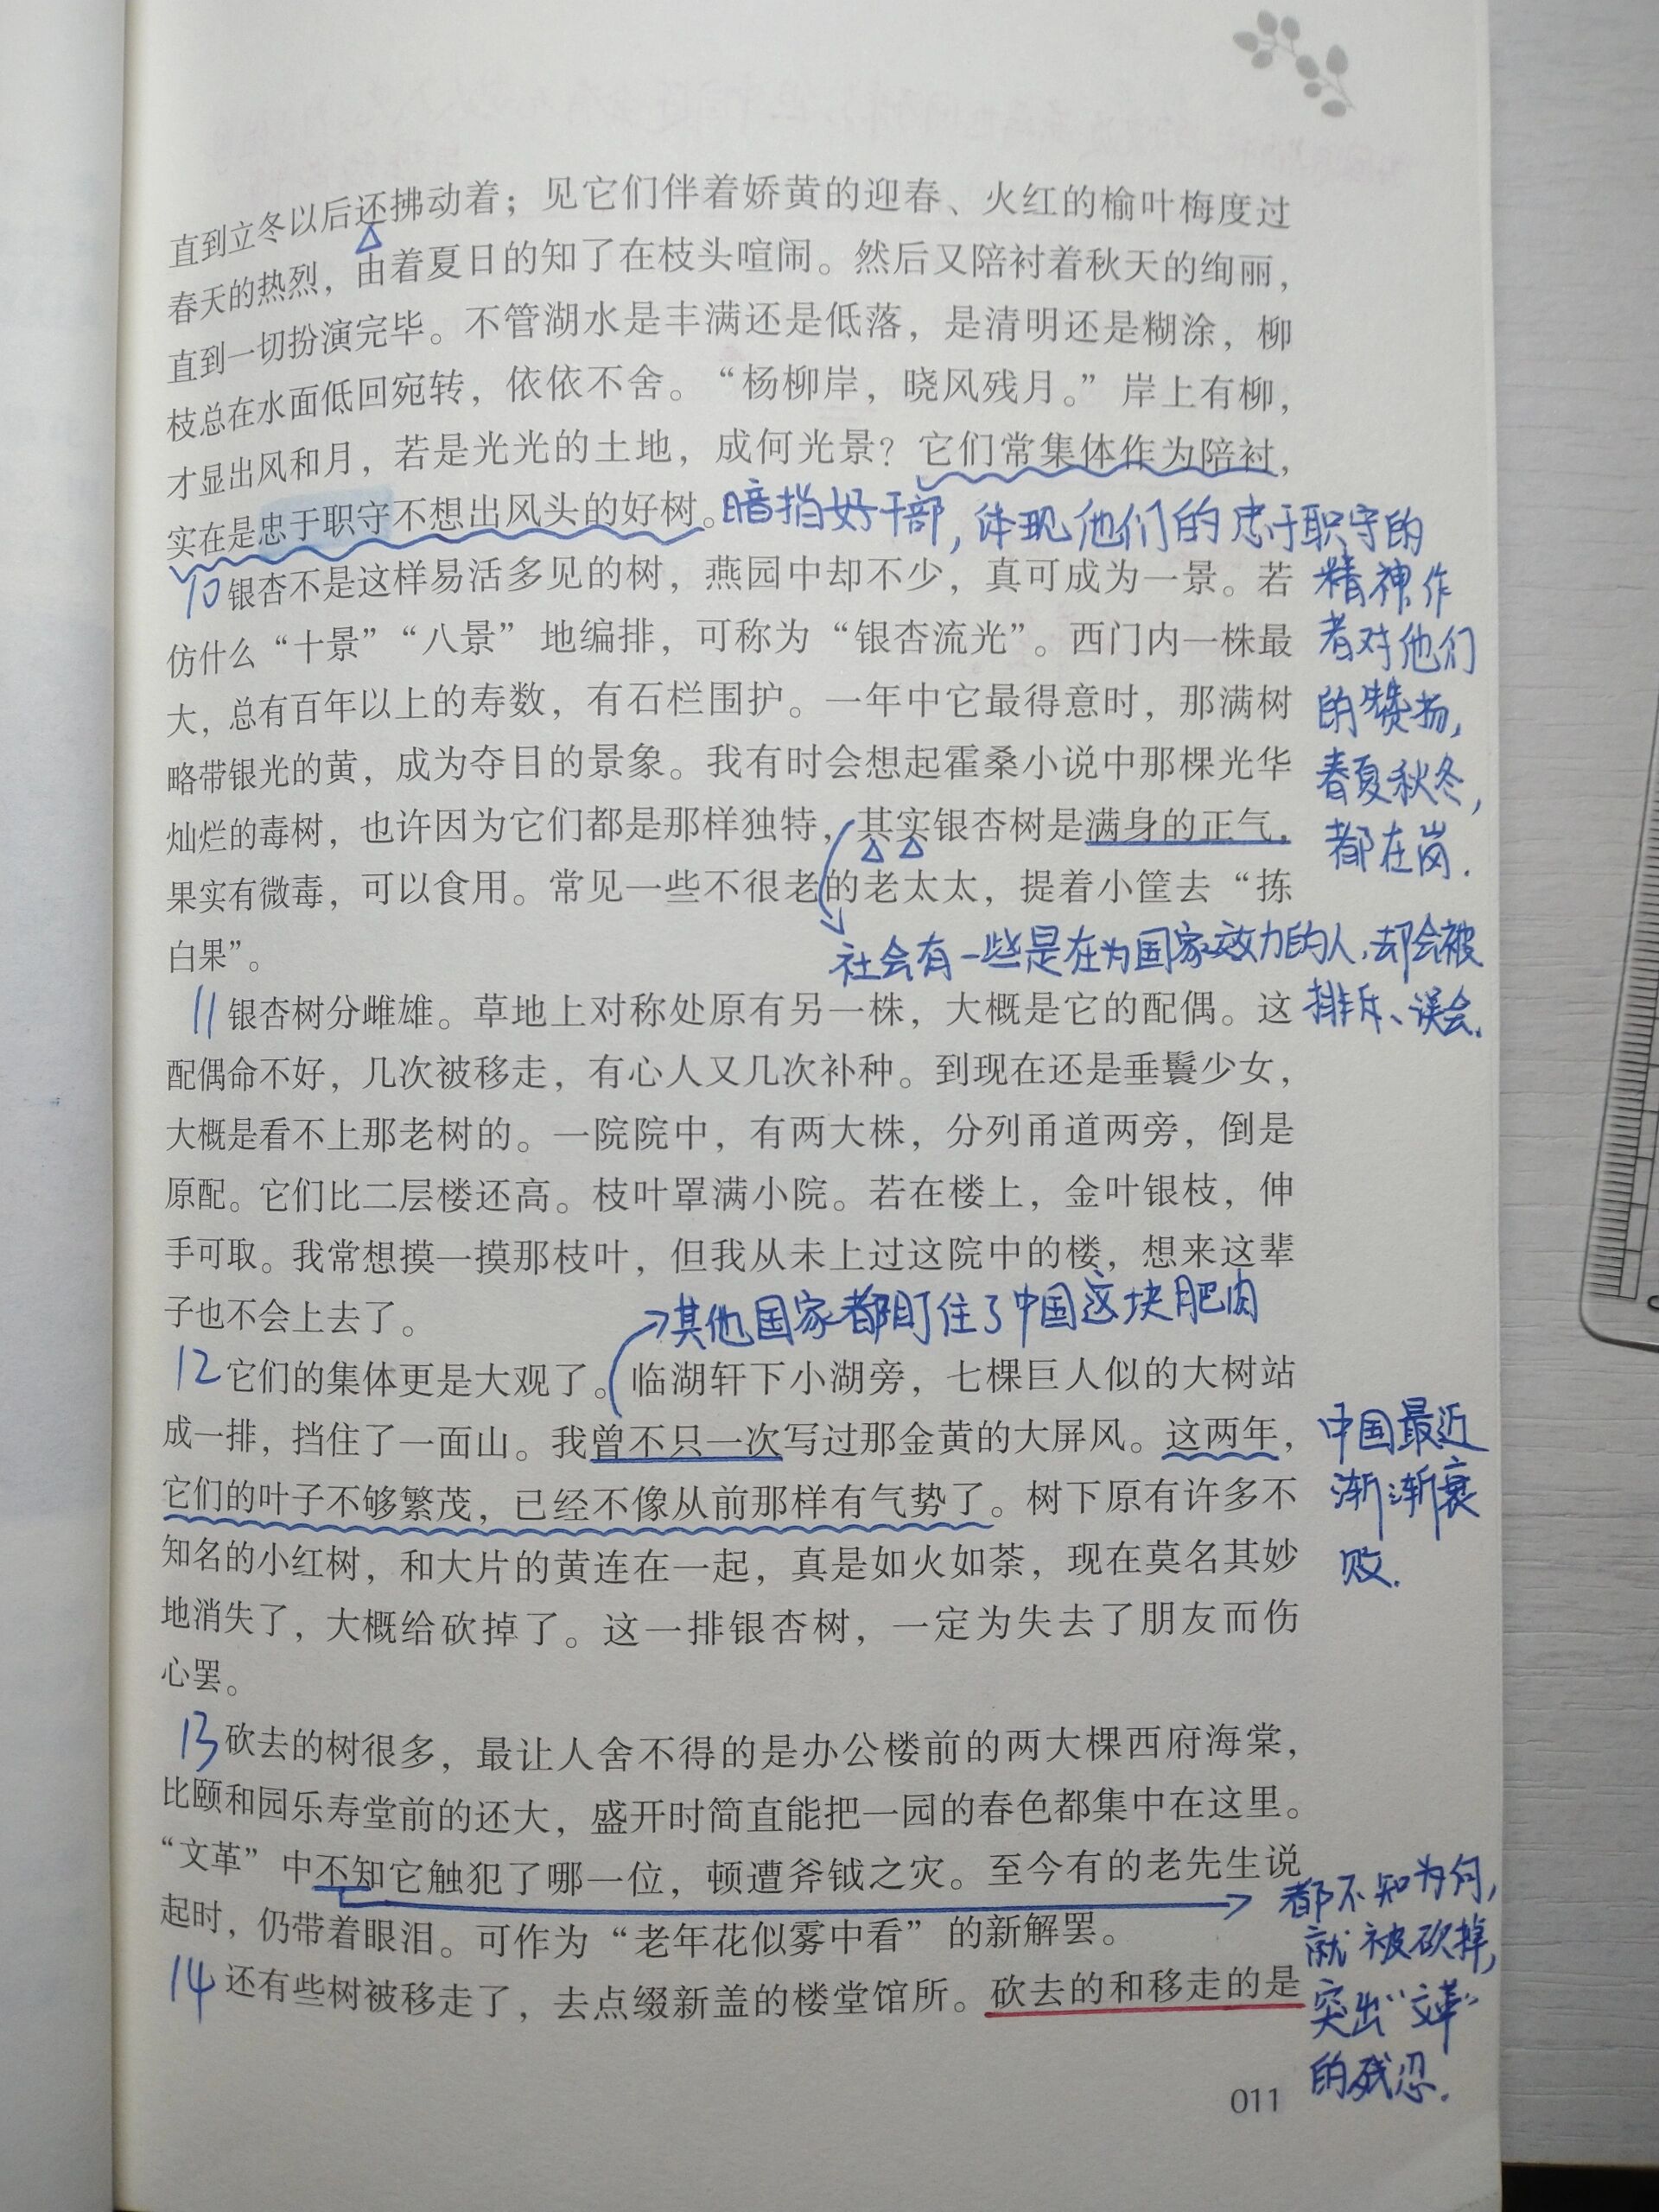 直到立冬以后还拂动着；见它们伴着娇黄的迎春、火红的榆叶梅度过
春天的热烈，由着夏日的知了在枝头喧闹。然后又陪衬着秋天的绚丽，
直到一切扮演完毕。不管湖水是丰满还是低落，是清明还是糊涂，柳
枝总在水面低回宛转，依依不舍。“杨柳岸，晓风残月。”岸上有柳，
才显出风和月，若是光光的土地，成何光景？它们常集体作为陪衬，
实在是忠于职守不想出风头的好树。
暗挡好干部，体现他们的忠于职守的
精神作
者对他们
的赞扬，
春夏秋冬，
都在岗.
10 银杏不是这样易活多见的树，燕园中却不少，真可成为一景。若
仿什么“十景”“八景”地编排，可称为“银杏流光”。西门内一株最
大，总有百年以上的寿数，有石栏围护。一年中它最得意时，那满树
略带银光的黄，成为夺目的景象。我有时会想起霍桑小说中那棵光华
灿烂的毒树，也许因为它们都是那样独特，其实银杏树是满身的正气，
果实有微毒，可以食用。常见一些不很老的老太太，提着小筐去“拣
白果”。
社会有一些是在为国家效力的人，却会被
排斥、误会.
11 银杏树分雌雄。草地上对称处原有另一株，大概是它的配偶。这
配偶命不好，几次被移走，有心人又几次补种。到现在还是垂鬟少女，
大概是看不上那老树的。一院院中，有两大株，分列甬道两旁，倒是
原配。它们比二层楼还高。枝叶罩满小院。若在楼上，金叶银枝，伸
手可取。我常想摸一摸那枝叶，但我从未上过这院中的楼，想来这辈
子也不会上去了。
其他国家都盯住了中国这块肥肉
12 它们的集体更是大观了。临湖轩下小湖旁，七棵巨人似的大树站
成一排，挡住了一面山。我曾不只一次写过那金黄的大屏风。这两年，
它们的叶子不够繁茂，已经不像从前那样有气势了。树下原有许多不
知名的小红树，和大片的黄连在一起，真是如火如荼，现在莫名其妙
地消失了，大概给砍掉了。这一排银杏树，一定为失去了朋友而伤
心罢。
中国最近
渐渐衰
败.
13 砍去的树很多，最让人舍不得的是办公楼前的两大棵西府海棠，
比颐和园乐寿堂前的还大，盛开时简直能把一园的春色都集中在这里。
“文革”中不知它触犯了哪一位，顿遭斧钺之灾。至今有的老先生说
起时，仍带着眼泪。可作为“老年花似雾中看”的新解罢。
都不知为何，
就被砍掉，
突出“文革”
的残忍.
14 还有些树被移走了，去点缀新盖的楼堂馆所。砍去的和移走的是
011